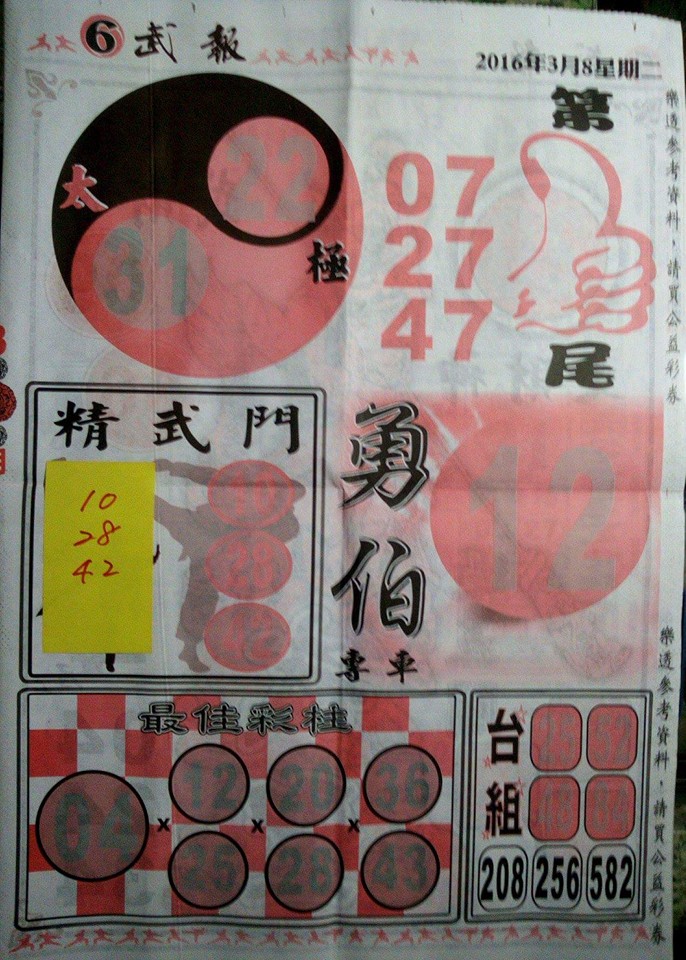 6 武報
2016年3月8星期二
樂透參考資料，請買公益彩券
太
22
31
極
第
07
27
47
尾
精武門
10
28
42
10
28
42
勇伯
專車
12
樂透參考資料，請買公益彩券
最佳彩柱
04 x 12 x 20 x 36
25 28 43
台組
25 52
48 84
208 256 582